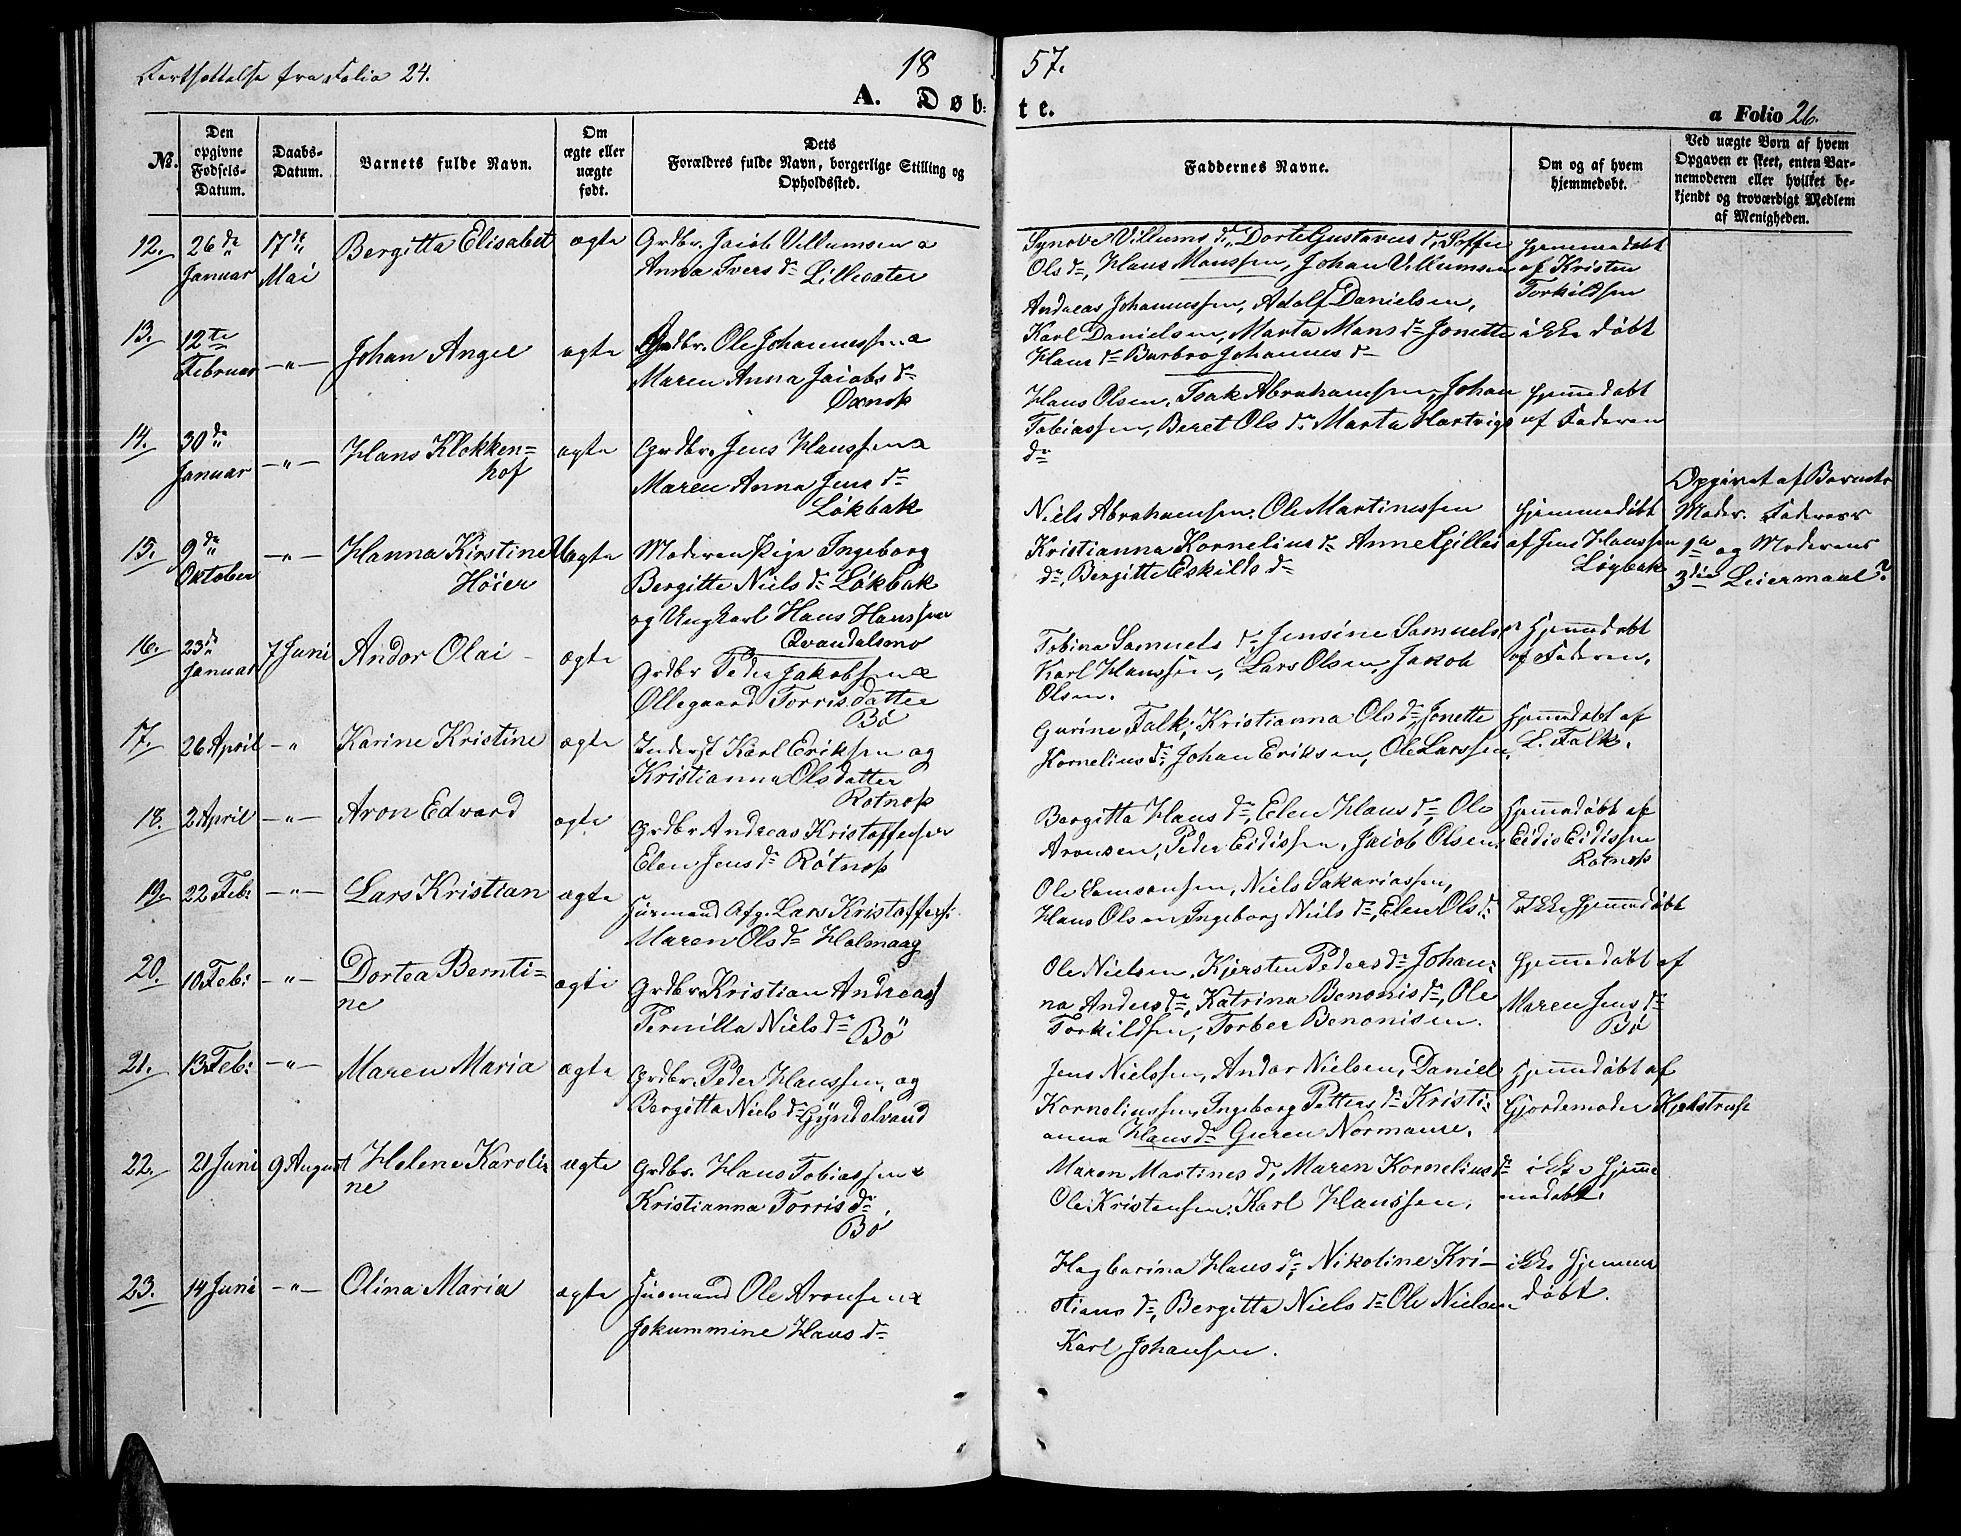 Fortsættelse fra Folio 24.
1857.
A. Døb-te.
a Folio 26.
No.
Den opgivne Fødsels-Datum.
Daabs-Datum.
Barnets fulde Navn.
Om ægte eller uægte født.
Dets Forældres fulde Navn, borgerlige Stilling og Opholdssted.
Faddernes Navne.
Om og af hvem hjemmedøbt.
Ved uægte Børn af hvem Opgaven er skeet, enten Barnemoderen eller hvilket bekjendt og troværdigt Medlem af Menigheden.
12. 26de Januar 17de Mai Bergitta Elisabet ægte
Grdbr. Jacob Villumsen &
Anna Ivers dr Lillevatn
Synove Villums dr, Dorte Gustavus dr, Soffie
Ols dr, Hans Monssen, Johan Villumsen
Andreas Johannessen, Adolf Danielsen,
hjemmedøbt
af Kristen
Torkildsen
13. 12te Februar —"— Johan Angel ægte
Grdbr. Ole Johannessen &
Maren Anna Jacobs dr
Oxnes
Karl Danielsen, Marta Mons dr Jonette
Hans dr Barbro Johannes dr
ikke døbt
14. 30de Januar —"— Hans Klokken=
hof
ægte
Grdbr. Jens Hanssen &
Maren Anna Jens dr
Løkbak
Hans Olsen, Isak Abrahamsen, Johan
Tobiassen, Beret Ols dr Marta Hartvigs
dr
hjemmedøbt
af Faderen
15. 9de Oktober —"— Hanna Kirstine
Høier
Uægte
Moderen Pige Ingeborg
Bergitte Niels dr Løkbak
og Ungkarl Hans Hanssen
Qvandalsmo
Niels Abrahamsen, Ole Martinussen
Kristianna Kornelius dr Anne Gilles
dr, Bergitte Eskilds dr
hjemmedøbt
af Jens Hanssen
Løgbak
Opgivet af Barnets
Moder. Faderens
1ste og Moderens
3die Leiermaal?
16. 23de Januar 7 Juni Andor Olai ægte
Grdbr Peder Jakobsen &
Ollegaard Torrisdatter
Bö
Tobina Samuels dr, Jensine Samuels dr
Karl Hanssen, Lars Olsen, Jakob
Olsen.
Hjemmdøbt
af Faderen.
17. 26 April —" Karine Kristine ægte
Inderst Karl Eriksen og
Kristianna Olsdatter
Rotnes
Gurine Falk, Kristianna Ols dr, Jonette
Kornelius dr, Johan Eriksen, Ole Larssen,
Hjemmdøbt af
L. Falk.
18. 2 April —"— Aron Edvard ægte
Grdbr Andreas Kristoffersen
Elen Jens dr Rotnes
Bergitta Hans dr, Elen Hans dr, Ole
Aronsen, Peder Eidissen, Jacob Olsen
Hjemmdøbt af
Eidis Eidissen
Rotnes
19. 22 Feb: —"— Lars Kristian ægte
Husmand Afg. Lars Kristoffers.
Maren Ols dr Holmaag
Ole Samsonsen, Niels Sakariassen,
Hans Olsen Ingeborg Niels dr, Elen Ols dr
Ikke hjemmdøbt
20. 10 Feb: —"— Dortea Bernti-
ne
ægte
Grdbr. Kristian Andreass
Pernilla Niels dr Bö
Ole Nielsen, Kjersten Peders dr Johan-
na Anders dr, Katrina Benonis dr, Ole
Torkildsen, Torber Benonisen.
hjemmdøbt af
Maren Jens dr
Bö
21. 13 Feb: —"— Maren Maria ægte
Grdbr. Peder Hanssen, og
Bergitta Niels dr
Jens Nielssen, Andor Nielsen, Daniel
Korneliussen, Ingeborg Petters dr Kristi-
anna Hans dr Guren Normanse.
Hjemmdøbt af
Gjordemoder
22. 21 Juni 9 August Helene Karoli
ne
ægte
Grdbr. Hans Tobiassen &
Kristianna Torris dr
Bö
Maren Martines dr, Maren Kornelius dr
Ole Kristensen, Karl Hanssen,
ikke hjemme
døbt.
23. 14 Juni —"— Olina Maria ægte
Husmand Ole Aronsen &
Jokummine Hans dr
Hagbarina Hans dr, Nikoline Kri-
stians dr, Bergitta Niels dr Ole Nielsen
Karl Johansen.
ikke hjemme
døbt.